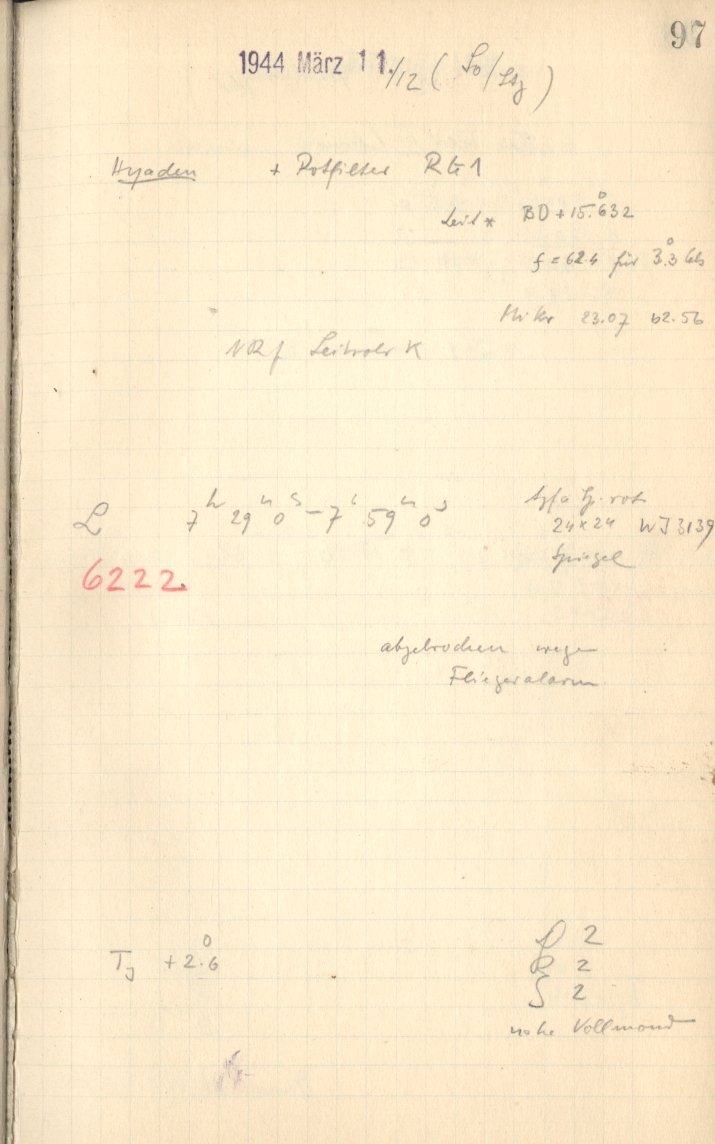 97
1944 März 11./12 (So/Stz)
Hyaden + Rotfilter RG 1
Leit * BD + 15.°632
f = 62.4 für 3.°3
Mikr 23.07 62.56
Leitrohr K
L 7h 29m 0s - 7h 59m 0s
Agfa rot
24x24 WJ 3139
6222
Spiegel
abgebrochen wegen
Fliegeralarm
TJ + 2.°6
D 2
R 2
S 2
nahe Vollmond